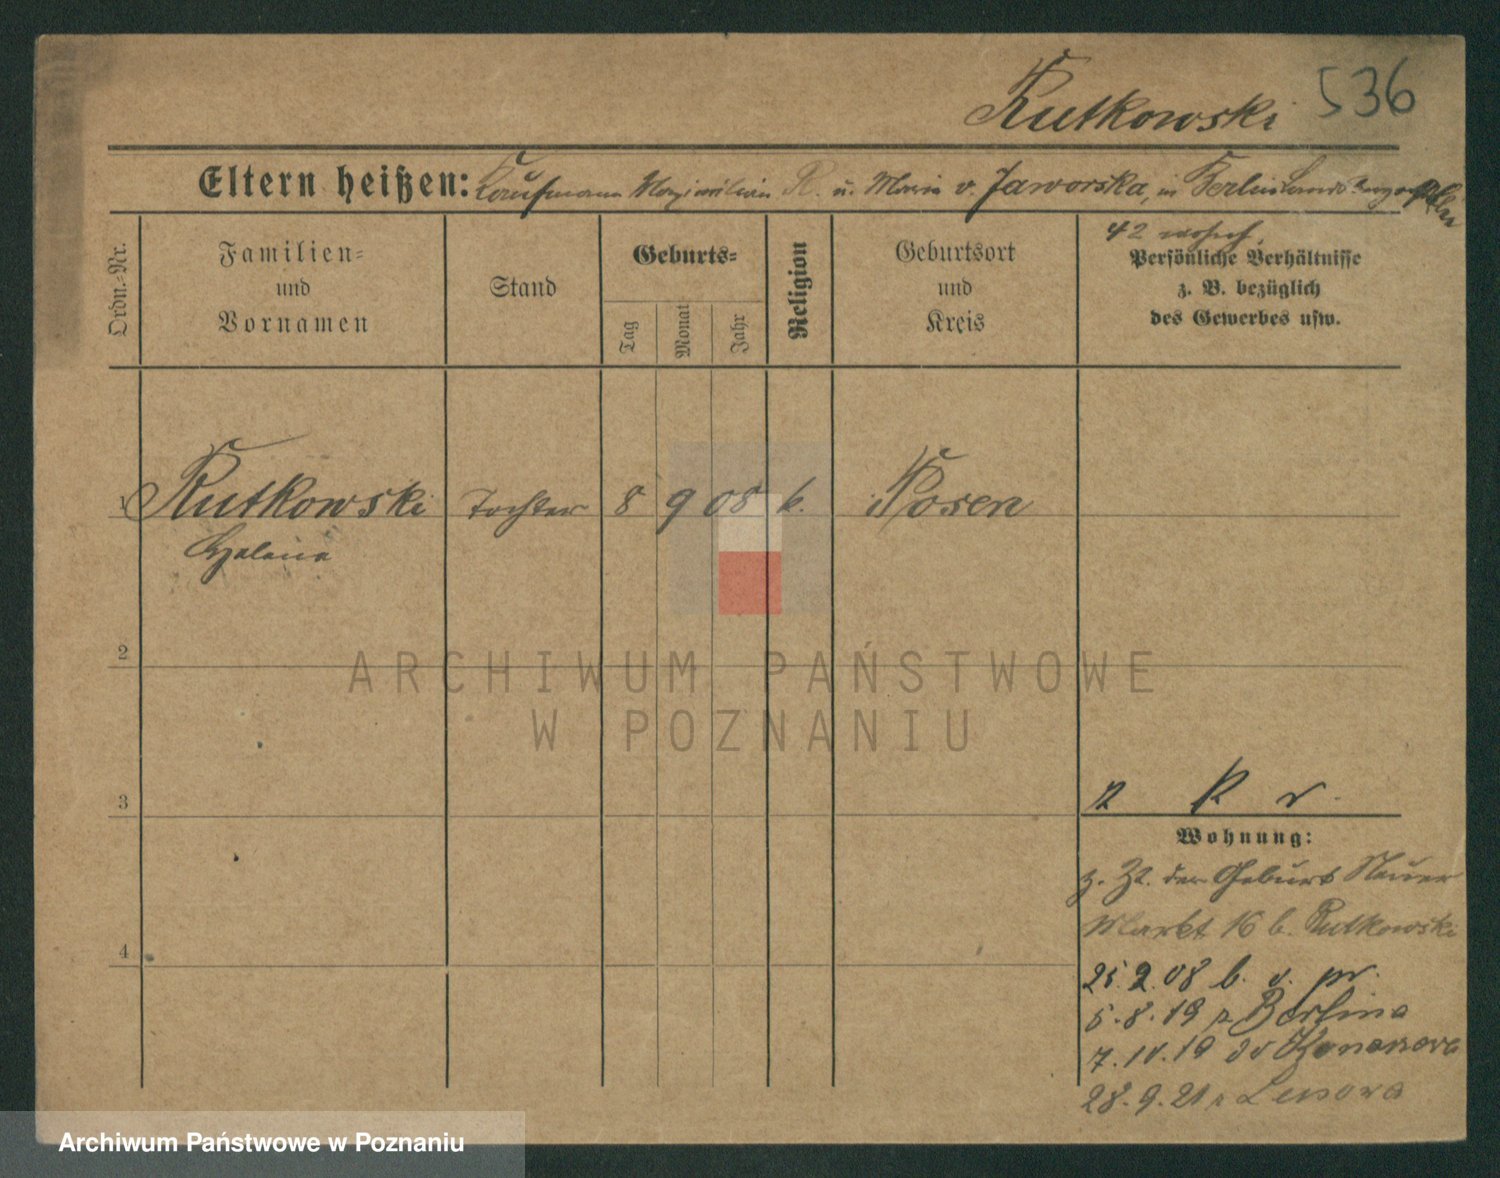 Rutkowski 536
Eltern heißen: Kaufmann Maximilian R. u. Maria v. Jaworska, in Berlin
42 wohnh.
Ordn.-Nr.
Familien-
und
Vornamen
Stand
Geburts-
Tag
Monat
Jahr
Religion
Geburtsort
und
Kreis
Persönliche Verhältnisse
z. B. bezüglich
des Gewerbes usw.
1 Rutkowski Tochter 8 9 08 k. Posen
Helena
2
ARCHIWUM PAŃSTWOWE
W POZNANIU
3
Wohnung:
z. Zt. der Geburt Neuer
Markt 16 b. Rutkowski
4
25.9.08 b. v. pr.
5.8.19 z Berlina
7. 19 do
28.9.21 z
Archiwum Państwowe w Poznaniu